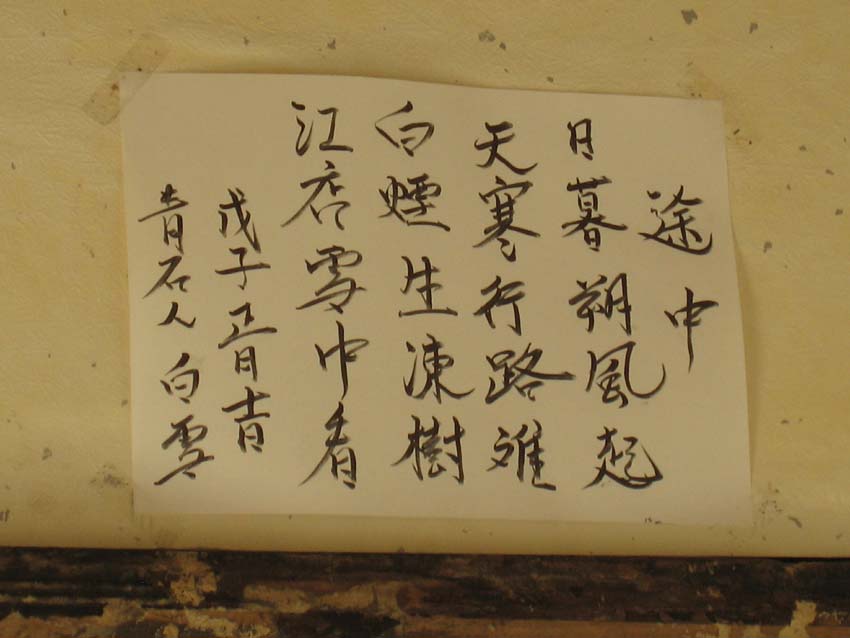 途中
日暮朔風起
天寒行路难
白煙生凍樹
江店雪中看
戊子正月十一日
青石人白雪